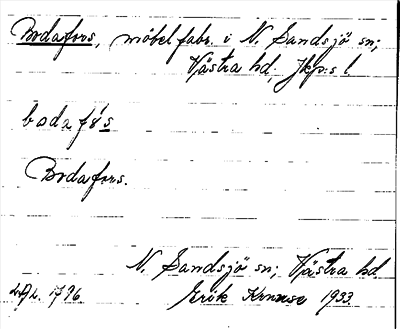 Bodafors, möbelfabr. i N. Sandsjö sn;
Västra hd; Jkp:s l.
bodafỡs
Bodafors.
N. Sandsjö sn; Västra hd
1796
Erik 1933.